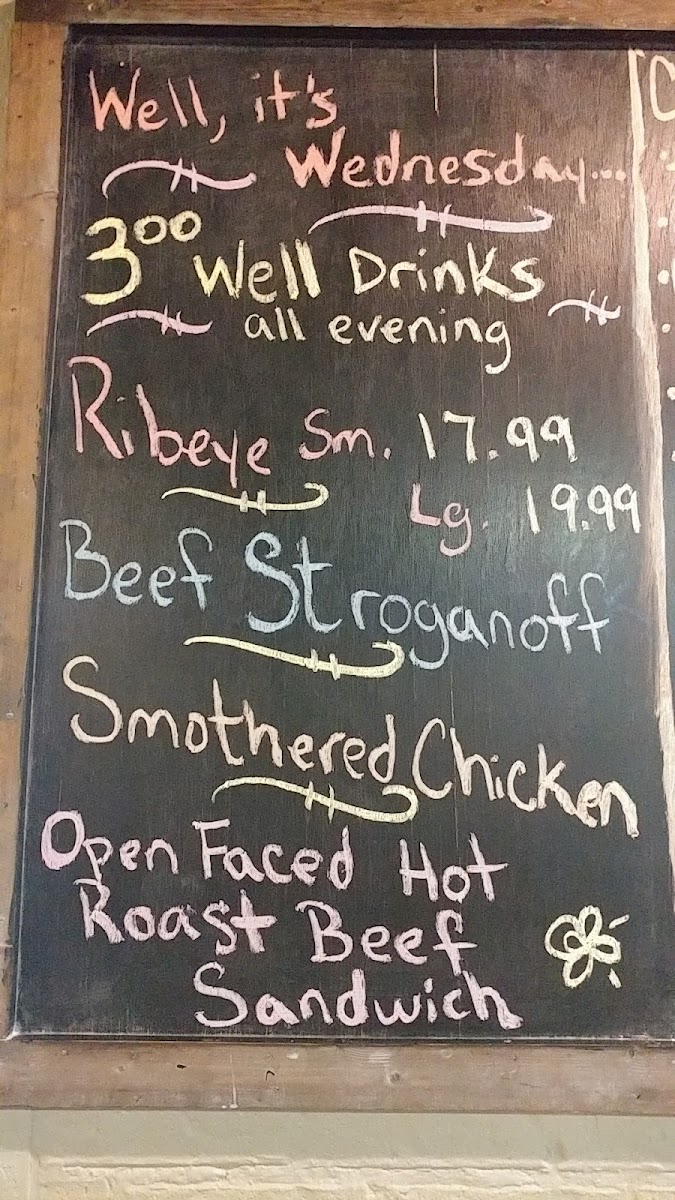 Well, it's
Wednesday...
3.00 Well Drinks
all evening
Ribeye Sm. 17.99
Lg. 19.99
Beef Stroganoff
Smothered Chicken
Open Faced Hot
Roast Beef
Sandwich